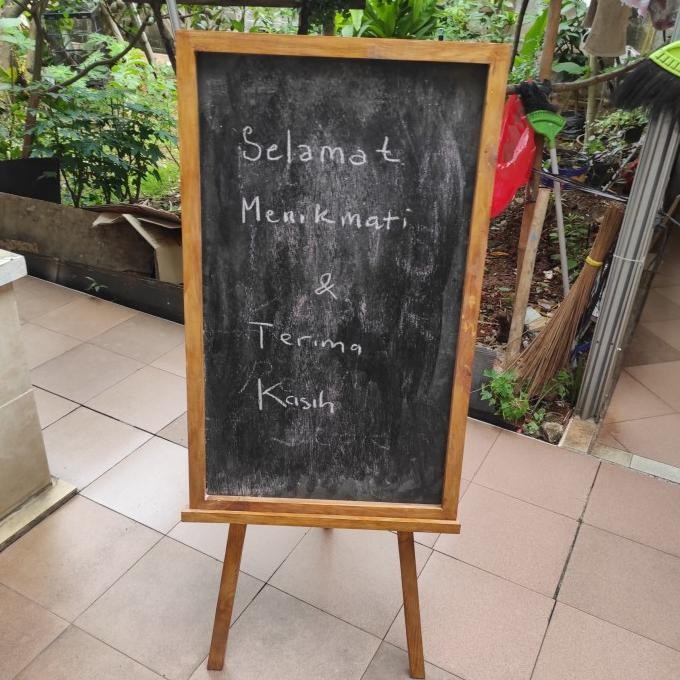 Selamat
Menikmati
&
Terima
Kasih